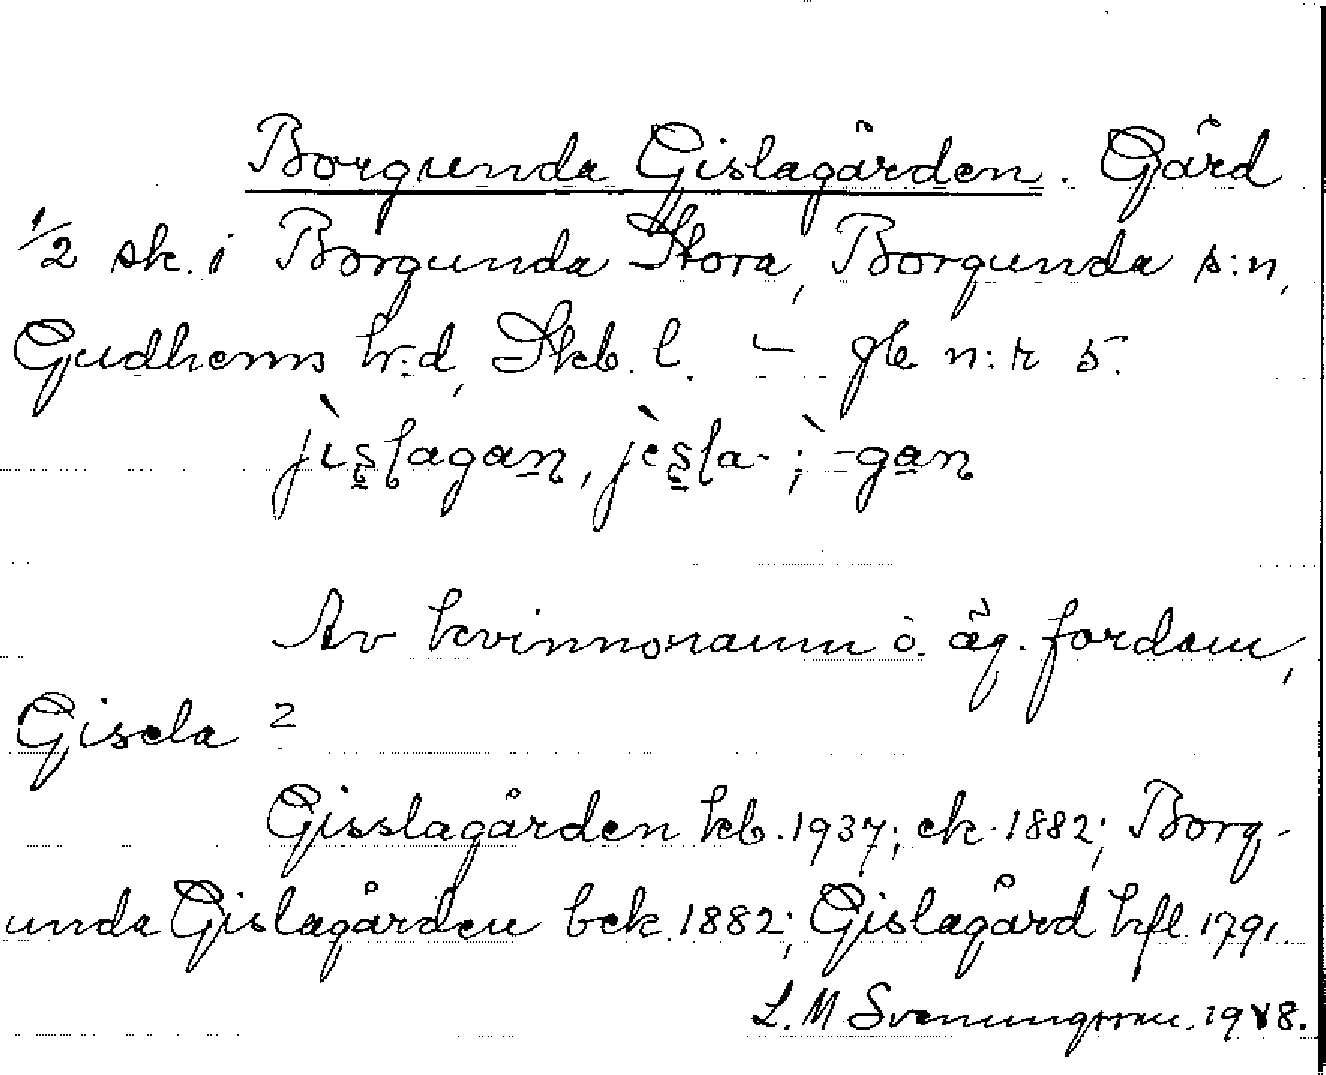 Borgunda Gislagården. Gård
1/2 sk. i Borgunda Stora, Borgunda s:n,
Gudhems h:d, Skb. l. – gb n:r 5.
jìslagan, jèsla- ; -gan
Av kvinnonamn o. äg. fordom,
Gisela?
Gisslagården kb. 1937; ek. 1882; Borg-
unda Gislagården bek. 1882; Gislagård hfl. 1791.
L. M Svenungsson. 1948.